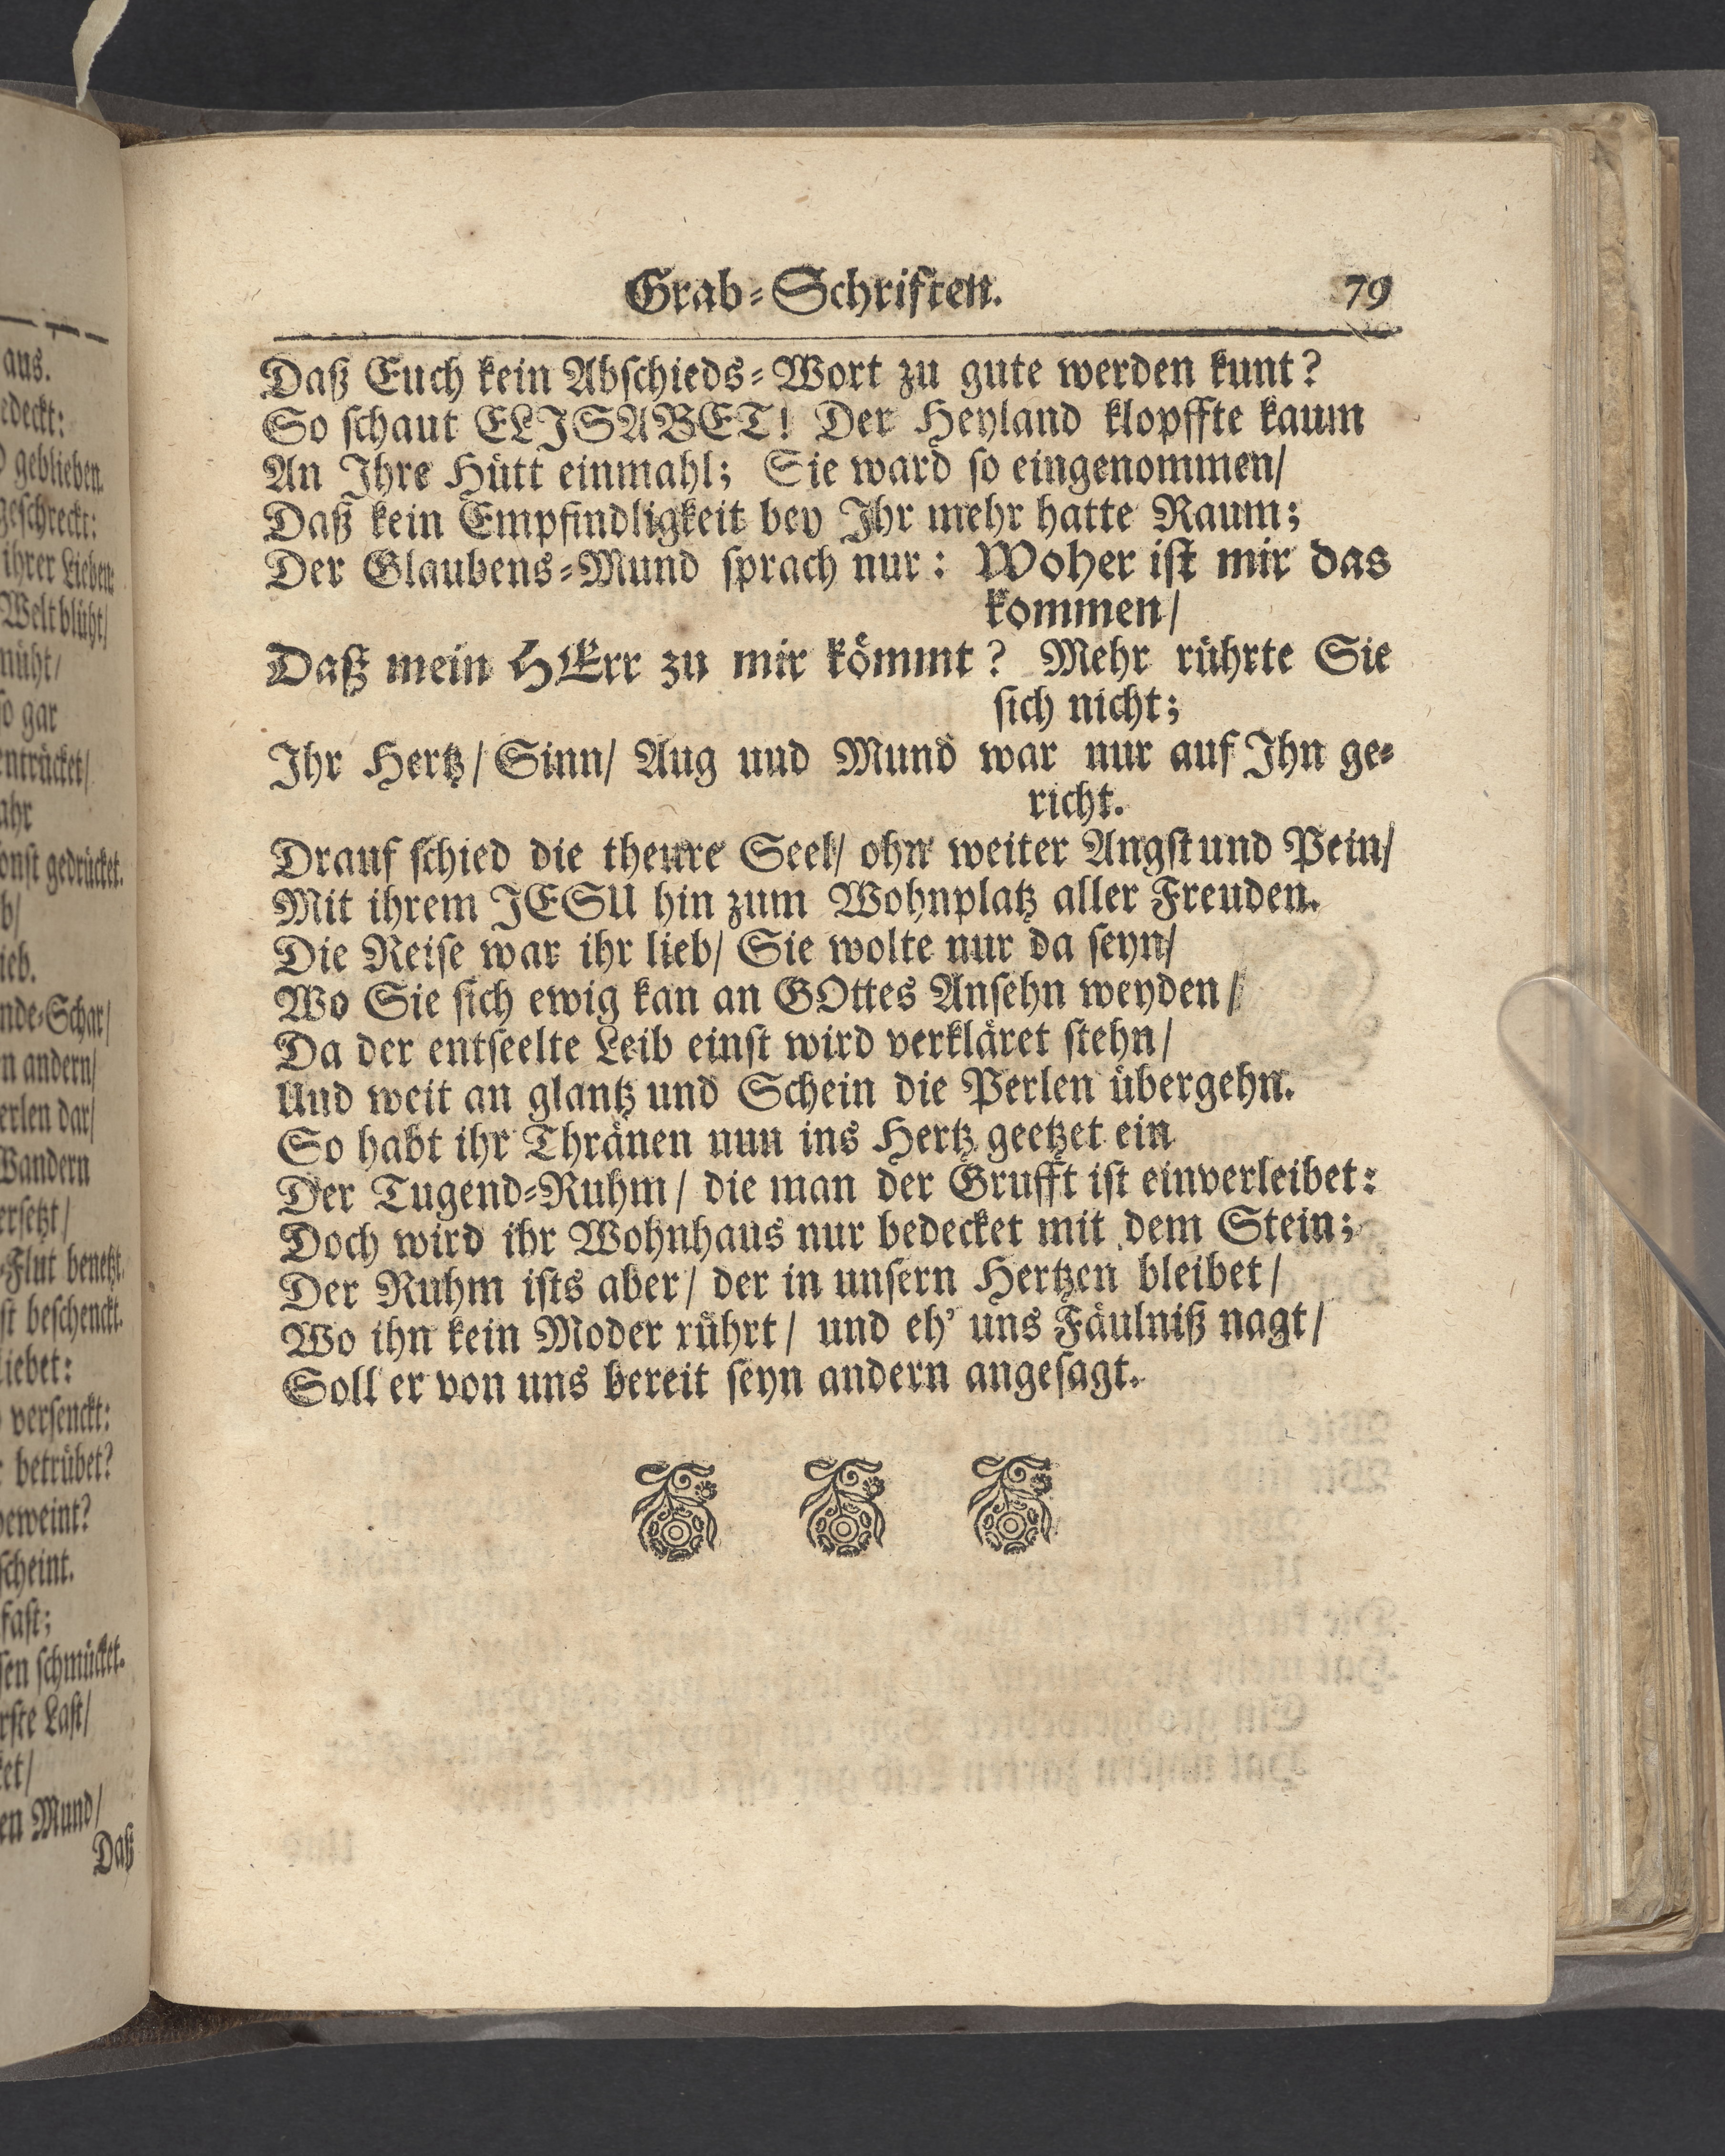 aus.
edeckt:
geblieben.
geschreckt:
ihrer Lieben
Welt blüht/
müht/
so gar
entrücket/
ahr
onst gedrücket.
b/
ieb.
nde-Schar/
n andern/
erlen dar/
Wandern
ersetzt/
Flut benetzt.
st beschenckt.
liebet:
versenckt:
betrübet?
beweint?
scheint.
fast;
sen schmücket.
rste Last/
et/
en Mund/
Daß
Grab-Schriften. 79
Daß Euch kein Abschieds-Wort zu gute werden kunt?
So schaut ELISABET! Der Heyland klopffte kaum
An Ihre Hütt einmahl; Sie ward so eingenommen/
Daß kein Empfindligkeit bey Ihr mehr hatte Raum;
Der Glaubens-Mund sprach nur: Woher ist mir das
kommen/
Daß mein HErr zu mir kömmt? Mehr rührte Sie
sich nicht;
Ihr Hertz/ Sinn/ Aug uud Mund war nur auf Ihn ge-
richt.
Drauf schied die theure Seel/ ohn weiter Angst und Pein/
Mit ihrem JESU hin zum Wohnplatz aller Freuden.
Die Reise war ihr lieb/ Sie wolte nur da seyn/
Wo Sie sich ewig kan an GOttes Ansehn weyden/
Da der entseelte Leib einst wird verkläret stehn/
Und weit an glantz und Schein die Perlen übergehn.
So habt ihr Thränen nun ins Hertz geetzet ein
Der Tugend-Ruhm/ die man der Grufft ist einverleibet:
Doch wird ihr Wohnhaus nur bedecket mit dem Stein;
Der Ruhm ists aber/ der in unsern Hertzen bleibet/
Wo ihn kein Moder rührt/ und eh' uns Fäulniß nagt/
Soll er von uns bereit seyn andern angesagt.